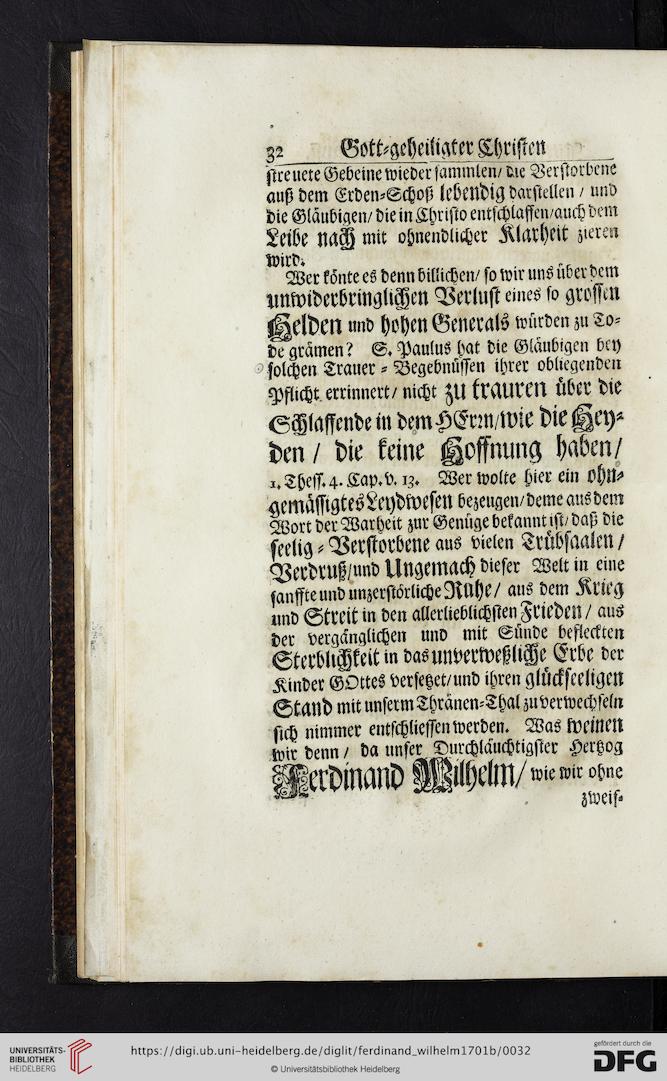 32 Gott-geheiligter Christen
streuete Gebeine wieder sammlen/ die Verstorbene
auß dem Erden-Schoß lebendig darstellen / und
die Gläubigen/ die in Christo entschlaffen/auch dem
Leibe nach mit ohnendlicher Klarheit zieren
wird.
Wer könte es denn billichen/ so wir uns über dem
unwiderbringlichen Verlust eines so grossen
Helden und hohen Generals würden zu To-
de grämen? S. Paulus hat die Gläubigen bey
solchen Trauer - Begebnüssen ihrer obliegenden
Pflicht errinnert/ nicht zu trauren über die
Schlaffende in dem HErrn/wie die Hey-
den / die keine Hoffnung haben/
1. Thess. 4. Cap. v. 13. Wer wolte hier ein ohn-
gemässigtes Leydwesen bezeugen/ deme aus dem
Wort der Warheit zur Genüge bekannt ist/ daß die
seelig - Verstorbene aus vielen Trübsaalen /
Verdruß/und Ungemach dieser Welt in eine
sanffte und unzerstörliche Ruhe/ aus dem Krieg
und Streit in den allerlieblichsten Frieden/ aus
der vergänglichen und mit Sünde befleckten
Sterblichkeit in das unverweßliche Erbe der
Kinder GOttes versetzet/und ihren glückseeligen
Stand mit unserm Thränen-Thal zu verwechseln
sich nimmer entschliessen werden. Was weinen
wir denn / da unser Durchläuchtigster Hertzog
Ferdinand Wilhelm/ wie wir ohne
zweif-
UNIVERSITÄTS-
BIBLIOTHEK
HEIDELBERG
https://digi.ub.uni-heidelberg.de/diglit/ferdinand_wilhelm1701b/0032
© Universitätsbibliothek Heidelberg
gefördert durch die
DFG